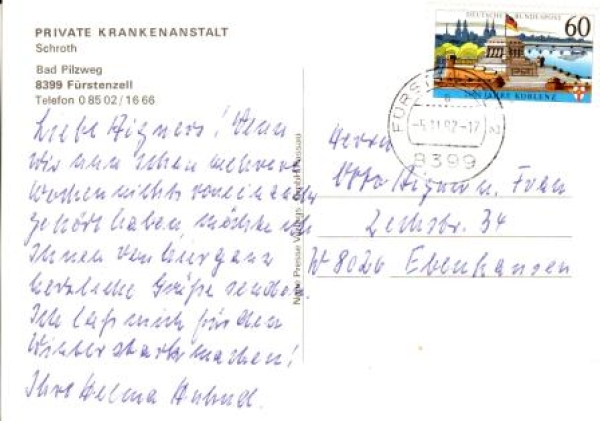 PRIVATE KRANKENANSTALT
Schroth
Bad Pilzweg
8399 Fürstenzell
Telefon 0 85 02 / 16 66
Liebe Aigners! Wenn
wir nun schon mehrere
Wochen nichts voneinander
gehört haben, möchte ich
Ihnen von hier ganz
herzliche Grüße senden.
Ich laß mich für den
Winter stark machen!
Ihre Helma
Neue Presse Verlags-GmbH Passau
DEUTSCHE BUNDESPOST
60
2000 JAHRE KOBLENZ
-5.11.92-17
8399
Herrn
Otto Aigner u. Frau
Lechstr. 34
W 8026 Ebenhausen